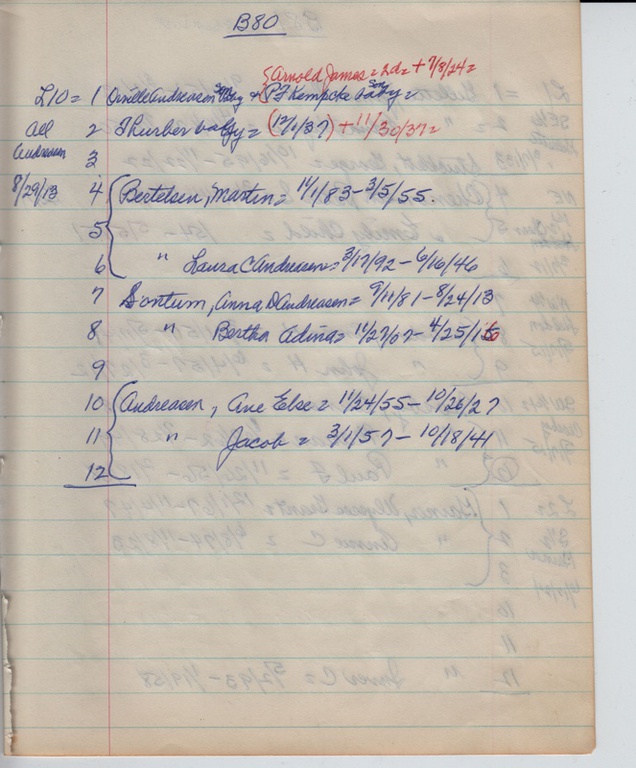 B80
{Arnold James = 2d = + 7/8/24 =
L10 = 1 Orville Andreasen Son baby + (P.F. Kempcke Son baby =
All 2 Thurber baby = (12/1/37) + 11/30/37 =
Andreasen 3
8/29/13 4 Bertelsen, Martin = 11/1/83 - 3/5/55.
5
6 " Laura C Andreasen = 3/17/92 - 6/16/46
7 Sontum, Anna D Andreasen = 9/11/81 - 8/24/13
8 " Bertha Adina = 11/27/07 - 4/25/16
9
10 Andreasen, Ane Else = 11/24/55 - 10/26/27
11 " Jacob = 3/1/57 - 10/18/41
12